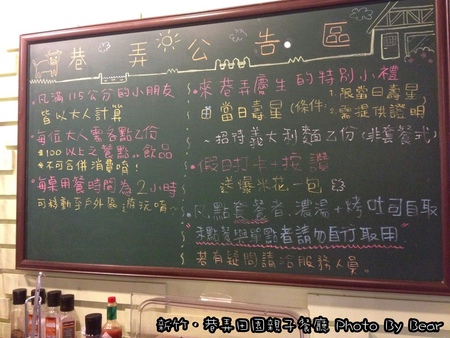 巷弄公告區
*凡滿115公分的小朋友
皆以大人計算
*每位大人需各點乙份
$100以上之餐點、飲品
*不可合併消費唷!
*每桌用餐時間為2小時
可移動至戶外區遊玩唷~
*來巷弄慶生的特別小禮
當日壽星(條件:1.限當日壽星
2.需提供證明
~招待義大利麵乙份(非套餐式)
*假日打卡+按讚
送爆米花一包
*凡點套餐者.濃湯+烤吐司自取
未點餐與單點者請勿自行取用
若有疑問請洽服務人員.
新竹‧巷弄田園親子餐廳 Photo By Bear